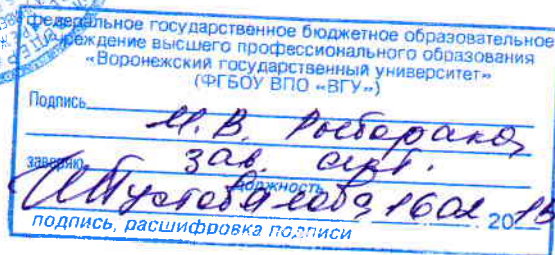 федеральное государственное бюджетное образовательное
учреждение высшего профессионального образования
«Воронежский государственный университет»
(ФГБОУ ВПО «ВГУ»)
Подпись
М.В.
заверяю зав.
должность
16 02 20
подпись, расшифровка подписи